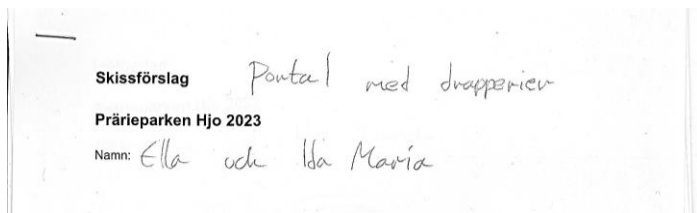 Skissförslag Portal med drapperier
Prärieparken Hjo 2023
Namn: Ella och Ida Maria